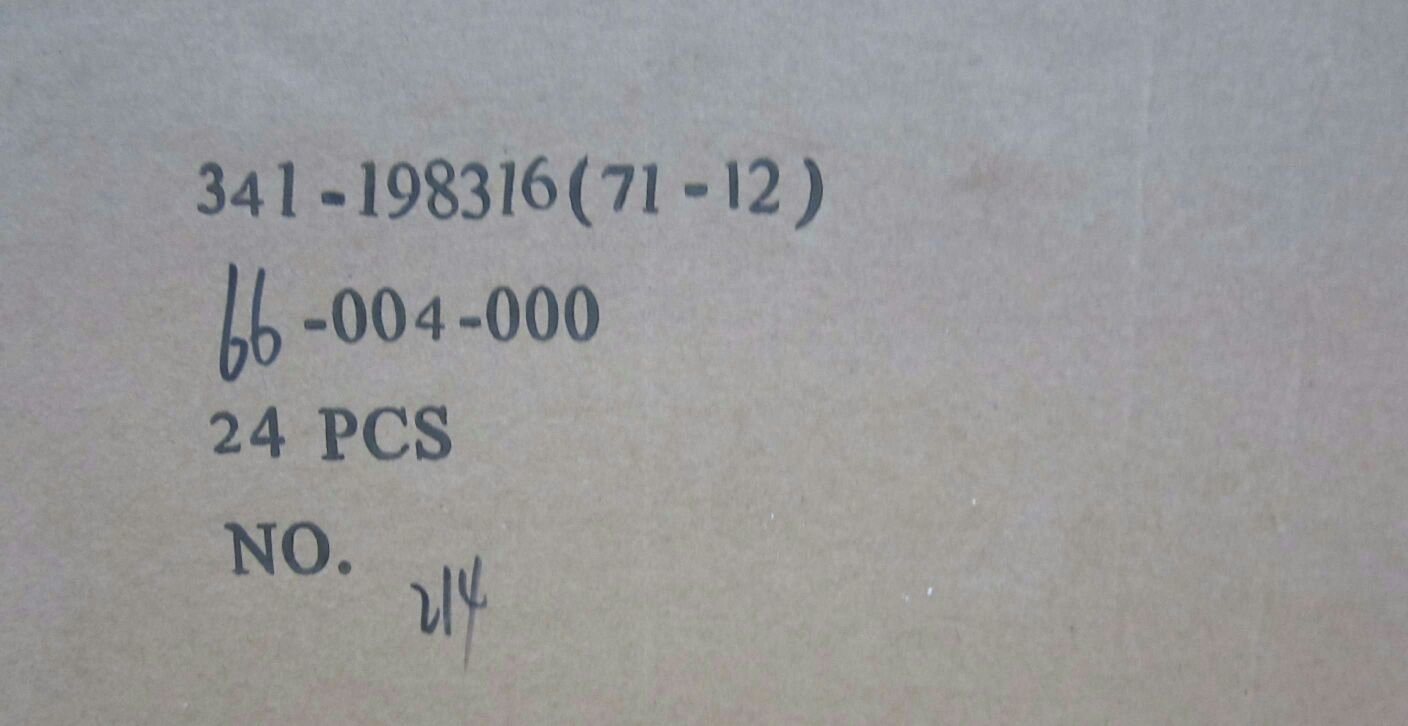 341-198316(71-12)
66-004-000
24 PCS
NO.
214